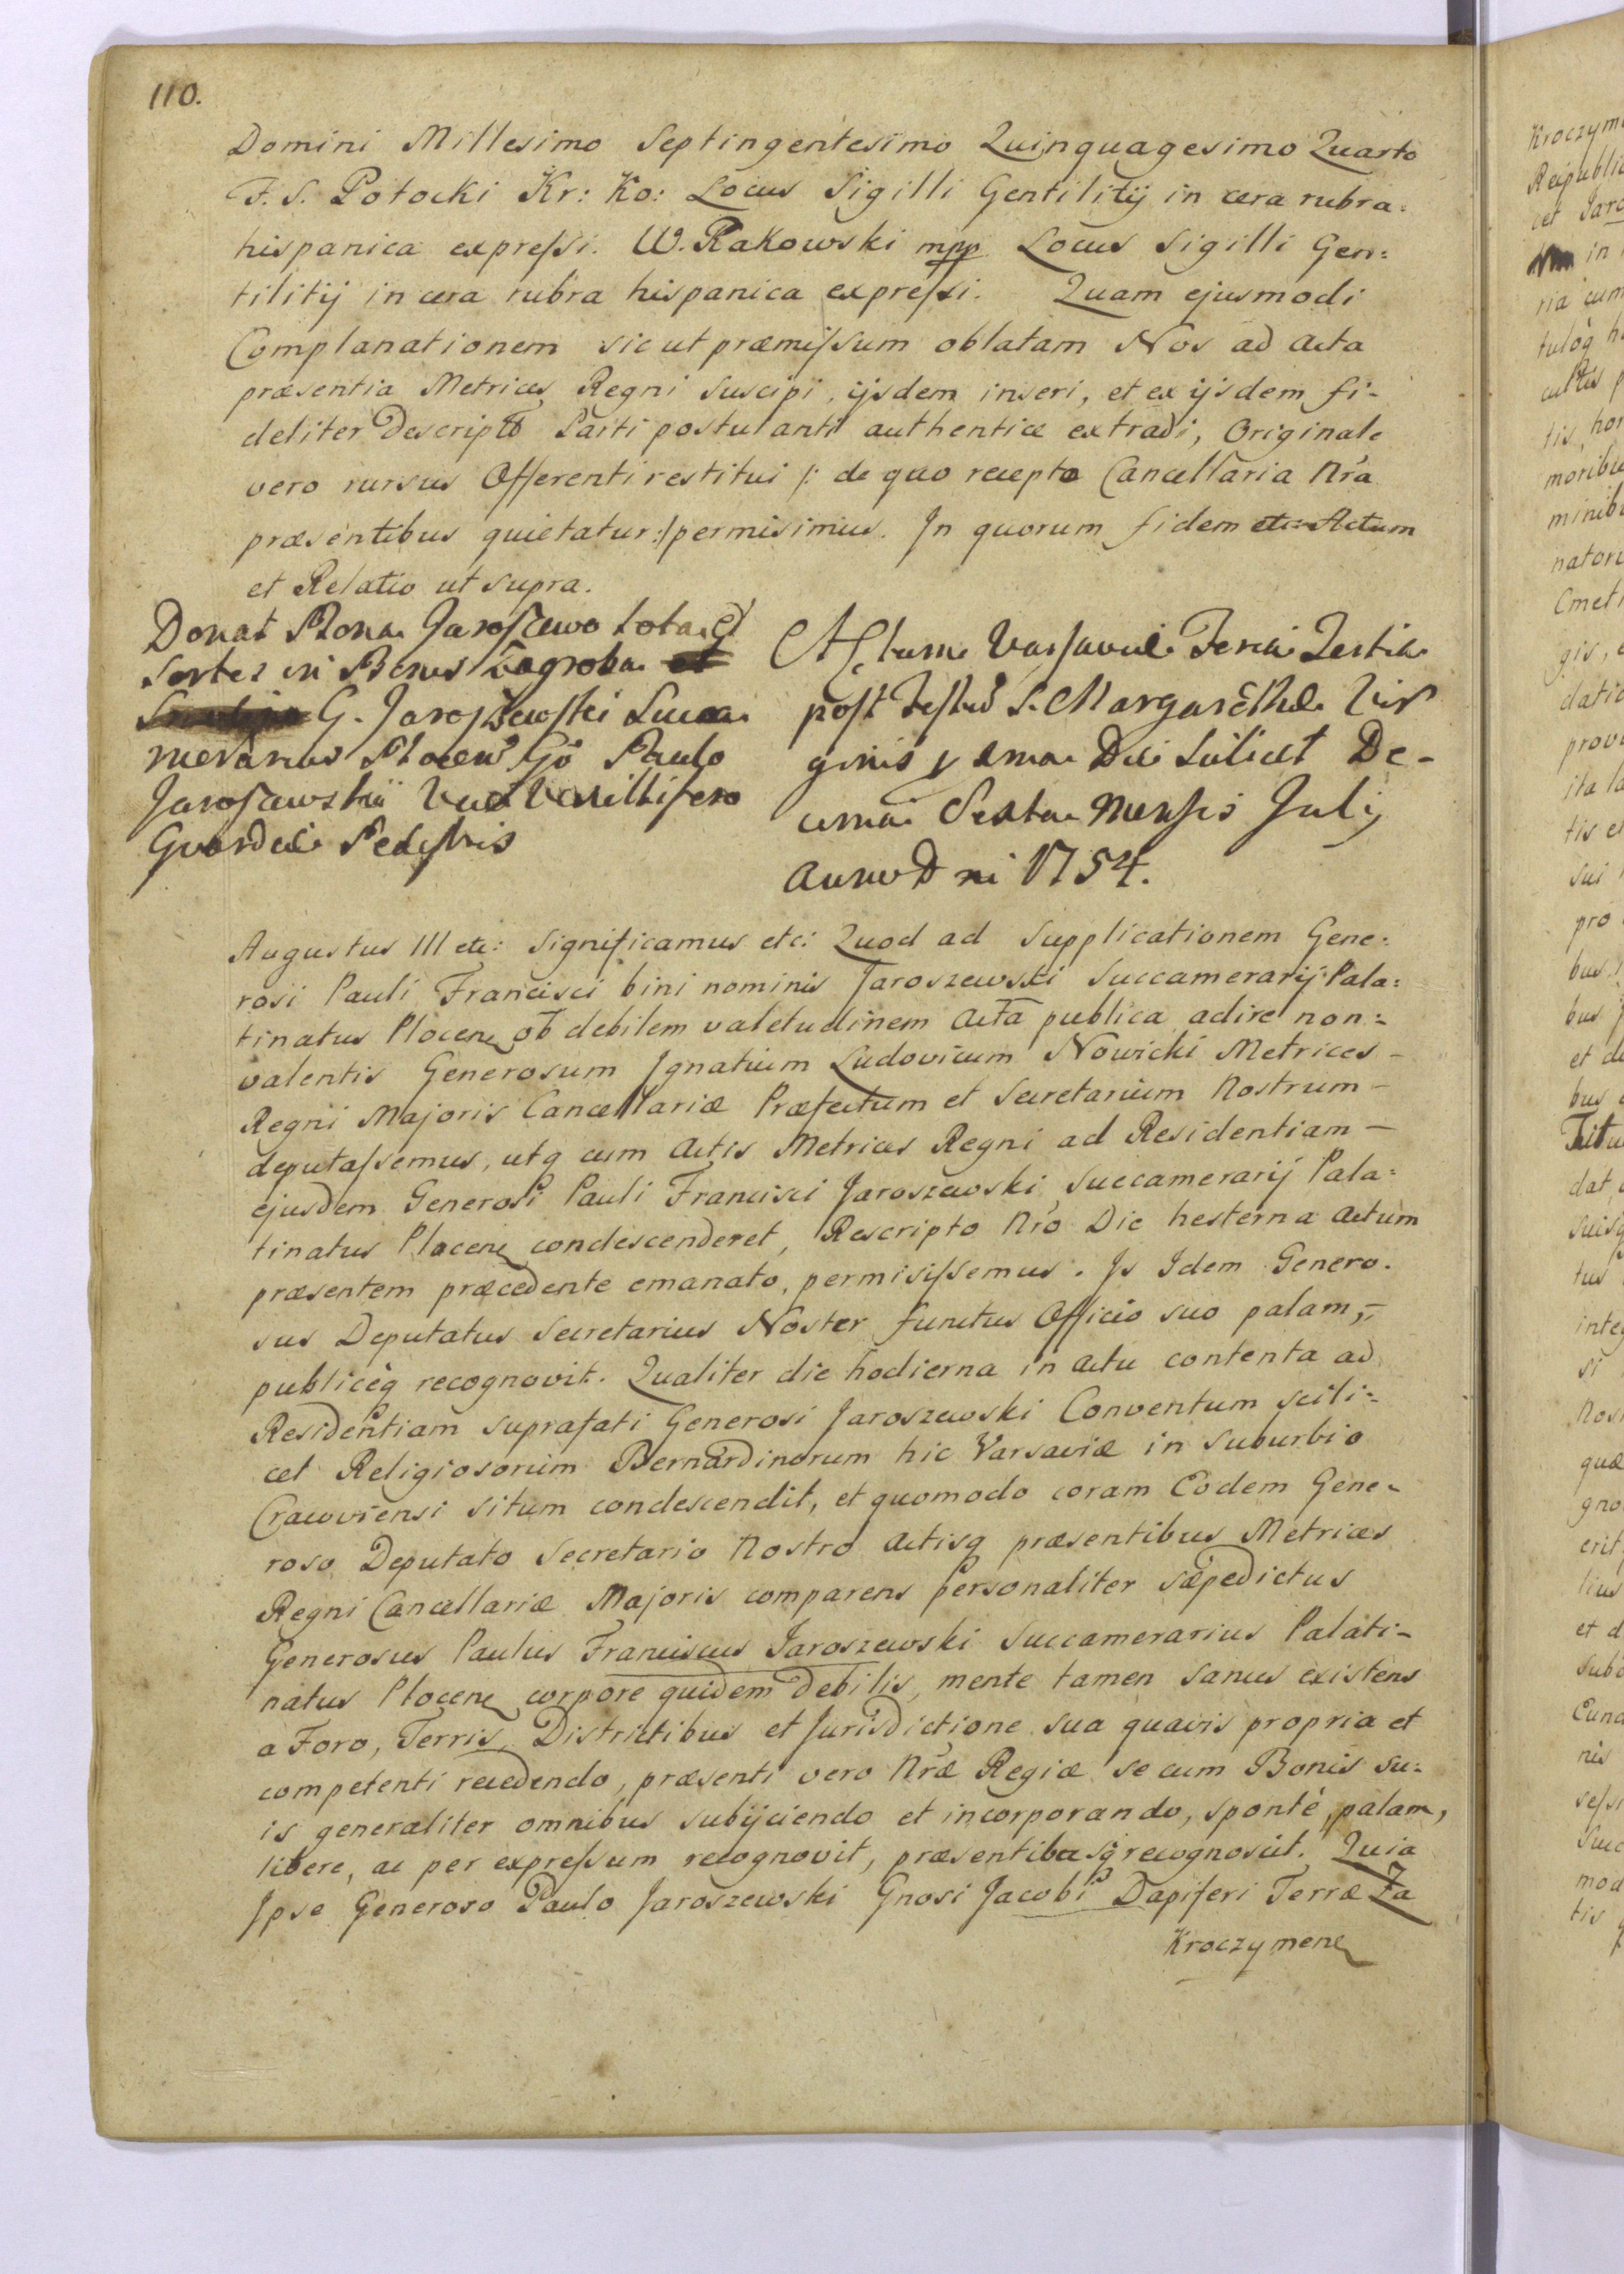 110.
Domini Millesimo Septingentesimo Quinquagesimo Quarto
F. S. Potocki Kr: Ko: Locus Sigilli Gentilitij in cera rubra=
hispanica expreſsi. W. Rakowski mpp Locus Sigilli Gen=
tilitij in cera rubra hispanica expreſsi. Quam ejusmodi
Complanationem sic ut præmiſsum oblatam Nos ad Acta
præsentia Metrices Regni suscipi, ijsdem inseri, et ex ijsdem fi-
deliter Descripto Parti postulanti authentice extradi, Originale
vero rursus Offerenti restitui /: de quo recepto Cancellaria Nr̃a
præsentibus quietatur :/ permisimus. In quorum fidem etc: Actum
et Relatio ut supra.
Donat Bona Jaroszewo tota et
Sortes in Bonis Bagroba
G. Jaroszewski Succa
merarius Plocen Gõ Paulo
Jaroszewskii Vexillifero
Guardiæ Pedestris
Actum Varsaviæ Feria Tertia
post Festum S. Margarethæ Vir
ginis prma Die scilicet De-
cima Sexta Mensis Julij
Anno Dni 1754.
Augustus III etc: Significamus etc: Quod ad Supplicationem Gene=
rosi Pauli Francisci bini nominis Jaroszewski Succamerarij Pala=
tinatus Plocen ob debilem valetudinem Acta publica adire non=
valentis Generosum Ignatium Ludovicum Nowicki Metrices-
Regni Majoris Cancellariæ Præfectum et Secretarium Nostrum-
deputaſsemus, utq cum Actis Metrices Regni ad Residentiam-
ejusdem Generosi Pauli Francisci Jaroszewski Succamerarij Pala=
tinatus Plocen condescenderet, Rescripto Nr̃o Die hesterna Actum
præsentem præcedente emanato, permisiſsemus. Is Idem Genero-
sus Deputatus Secretarius Noster functus Officio suo palam,-
publicèq recognovit. Qualiter die hodierna in Actu contenta ad
Residentiam suprafati Generosi Jaroszewski Conventum scili=
cet Religiosorum Bernardinorum hic Varsaviæ in Suburbio
Cracoviensi situm condescendit, et quomodo coram Eodem Gene-
roso Deputato Secretario Nostro Actisq præsentibus Metrices
Regni Cancellariæ Majoris comparens Personaliter sæpedictus
Generosus Paulus Franciscus Jaroszewski Succamerarius Palati-
natus Plocen corpore quidem Debilis, mente tamen sanus existens
a Foro, Terris, Districtibus et Jurisdictione sua quavis propria et
competenti recedendo, præsenti vero Nr̃æ Regiæ se cum Bonis su=
is generaliter omnibus subijciendo et incorporando, spontè, palam,
libere, ac per expreſsum recognovit, præsentibusq recognoscit. Quia
Ipse Generoso Paulo Jaroszewski Gnosi Jacobi Dapiferi Terræ Za
Kroczymen